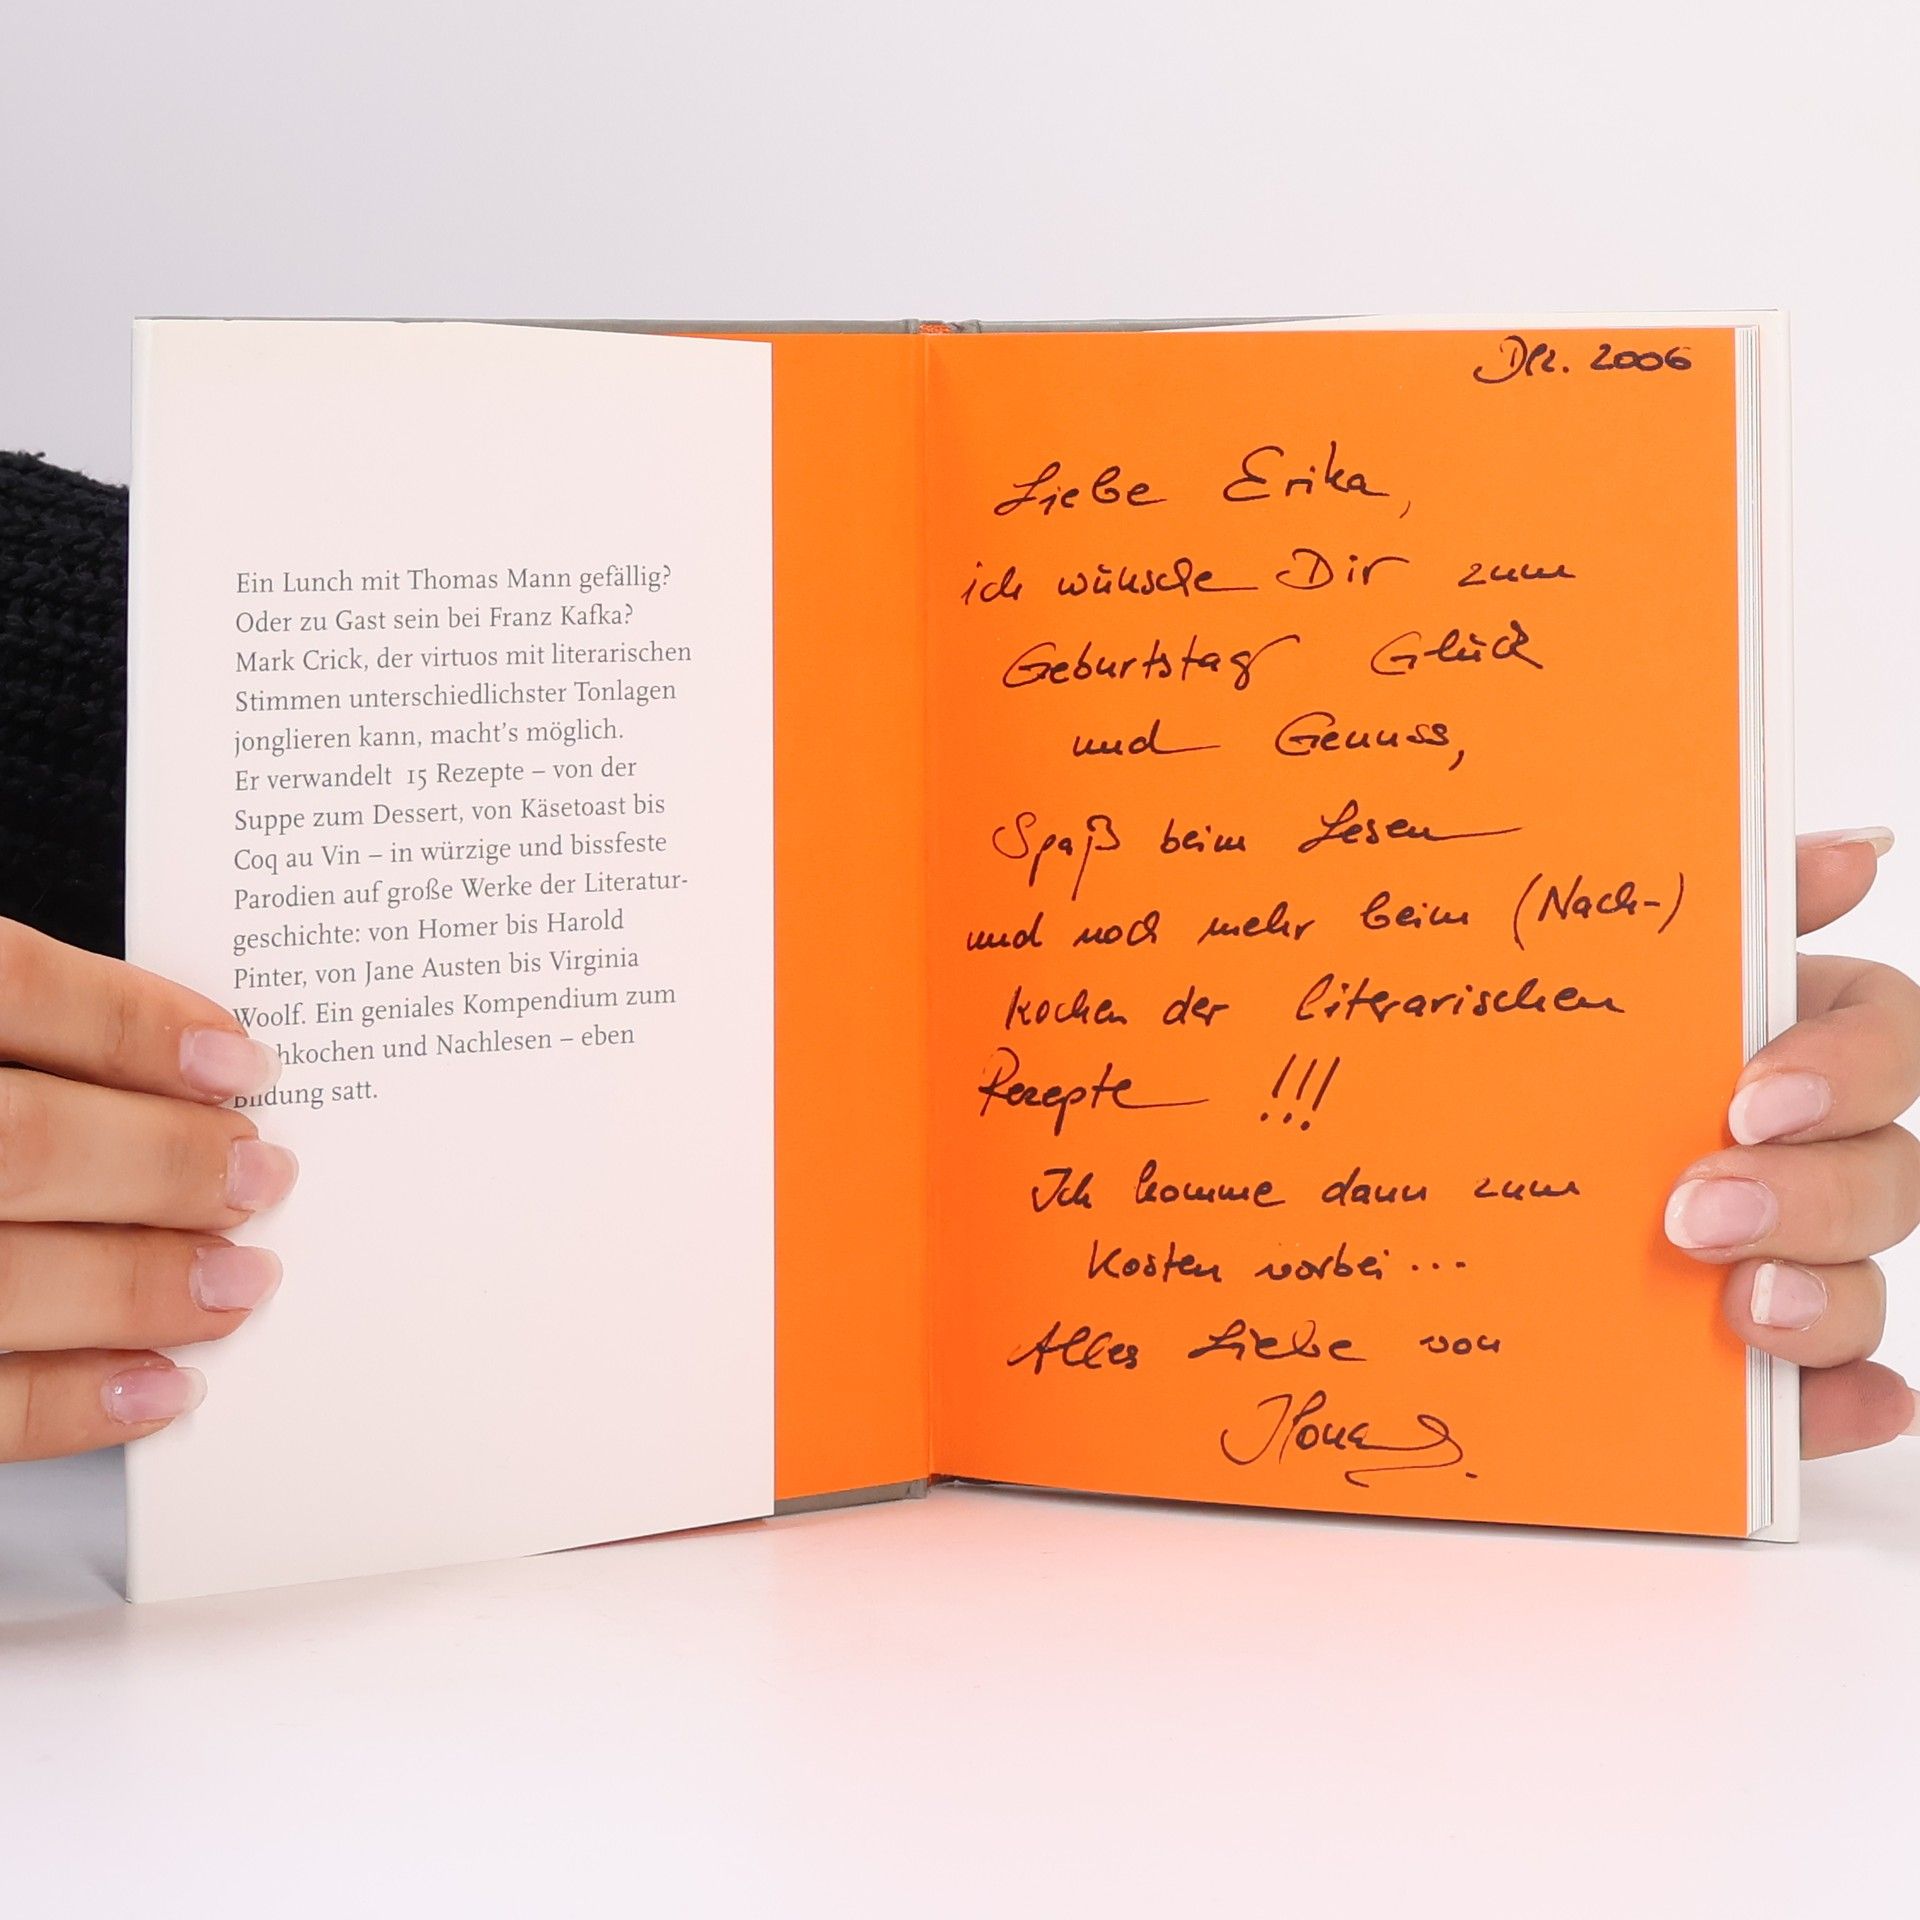 Ein Lunch mit Thomas Mann gefällig?
Oder zu Gast sein bei Franz Kafka?
Mark Crick, der virtuos mit literarischen
Stimmen unterschiedlichster Tonlagen
jonglieren kann, macht's möglich.
Er verwandelt 15 Rezepte – von der
Suppe zum Dessert, von Käsetoast bis
Coq au Vin – in würzige und bissfeste
Parodien auf große Werke der Literatur-
geschichte: von Homer bis Harold
Pinter, von Jane Austen bis Virginia
Woolf. Ein geniales Kompendium zum
hkochen und Nachlesen – eben
Bildung satt.
Dez. 2006
Liebe Erika,
ich wünsche Dir zum
Geburtstag Glück
und Genuss,
Spaß beim Lesen
und noch mehr beim (Nach-)
kochen der literarischen
Rezepte !!!
Ich komme dann zum
Kosten vorbei ...
Alles Liebe von
Ilona